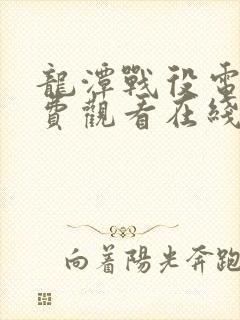 龍潭戰役電
費觀看在綫
向着陽光奔跑